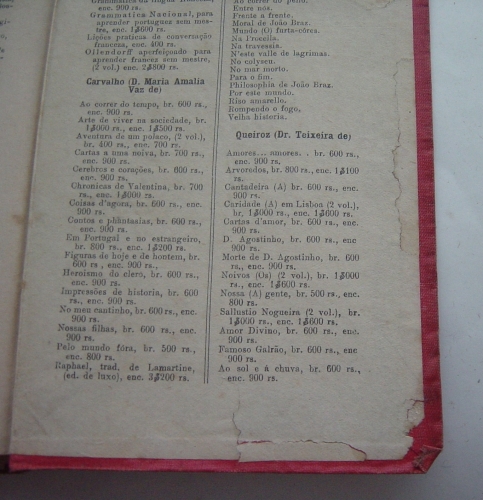 enc. 900 rs.
Grammatica Nacional, para
aprender portuguez sem mes-
tre, enc. 1$600 rs.
Lições praticas de conversação
franceza, enc. 400 rs.
Ollendorff aperfeiçoado para
aprender francez sem mestre,
(2 vol.) enc. 2$800 rs.
Carvalho (D. Maria Amalia
Vaz de)
Ao correr do tempo, br. 600 rs.,
enc. 900 rs.
Arte de viver na sociedade, br.
1$000 rs., enc. 1$500 rs.
Aventura de um polaco, (2 vol.),
br. 400 rs., enc. 700 rs.
Cartas a uma noiva, br. 700 rs.,
enc. 900 rs.
Cerebros e corações, br. 600 rs.,
enc. 900 rs.
Chronicas de Valentina, br. 700
rs., enc. 1$000 rs.
Coisas d'agora, br. 600 rs., enc.
900 rs.
Contos e phantasias, br. 600 rs.,
enc. 900 rs.
Em Portugal e no estrangeiro,
br. 800 rs., enc. 1$200 rs.
Figuras de hoje e de hontem, br.
600 rs., enc. 900 rs.,
Heroismo do clero, br. 600 rs.,
enc. 900 rs.
Impressões de historia, br. 600
rs., enc. 900 rs.
No meu cantinho, br. 600 rs., enc.
900 rs.
Nossas filhas, br. 600 rs., enc.
900 rs.
Pelo mundo fóra, br. 500 rs.,
enc. 800 rs.
Raphael, trad. de Lamartine,
(ed. de luxo), enc. 3$200 rs.
Ao correr do pello.
Entre nós.
Frente a frente.
Moral de João Braz.
Mundo (O) furta-côres.
Na Procella.
Na travessia.
N'este valle de lagrimas.
No colyseu.
No mar morto.
Para o fim.
Philosophia de João Braz.
Por este mundo.
Riso amarello.
Rompendo o fogo.
Velha historia.
Queiroz (Dr. Teixeira de)
Amores... amores.. br. 600 rs.,
enc. 900 rs.
Arvoredos, br. 800 rs., enc. 1$100
rs.
Cantadeira (A) br. 600 rs., enc.
900 rs.
Caridade (A) em Lisboa (2 vol.),
br, 1$000 rs., enc. 1$600 rs.
Cartas d'amor, br. 600 rs., enc.
900 rs.
D. Agostinho, br. 600 rs., enc
900 rs.
Morte de D. Agostinho, br. 600
rs., enc. 900 rs.
Noivos (Os) (2 vol.), br. 1$000
rs., enc. 1$600 rs.
Nossa (A) gente, br. 500 rs., enc.
800 rs.
Sallustio Nogueira (2 vol.), br.
1$000 rs., enc. 1$600 rs.
Amor Divino, br. 600 rs., enc.
900 rs.
Famoso Galrão, br. 600 rs., enc
900 rs.
Ao sol e á chuva, br. 600 rs.,
enc. 900 rs.